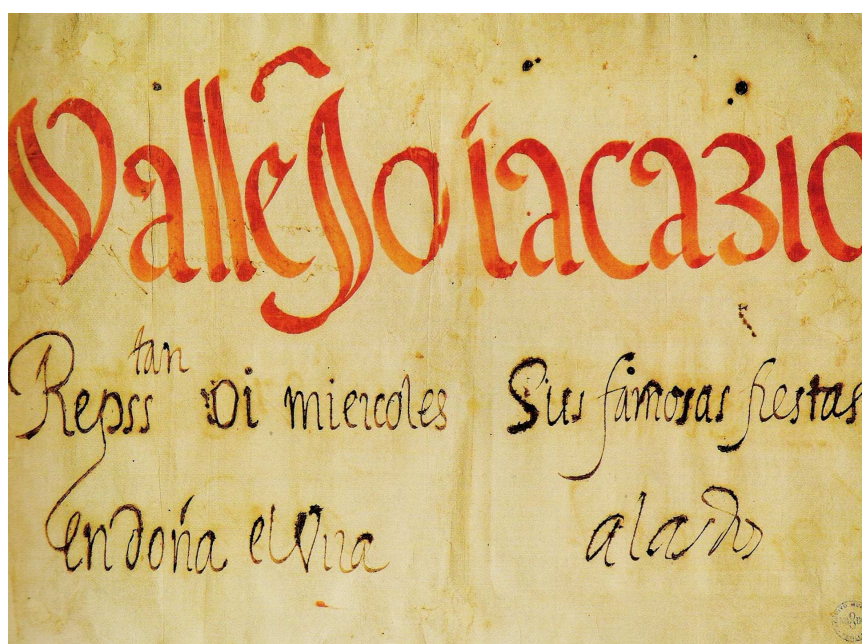 Vallejo iacazio
Repsstan Oi miercoles Sus famosas fiestas
en doña elvira a las dos